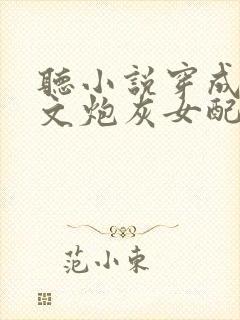 聽小説穿成
文炮灰女配
范小東